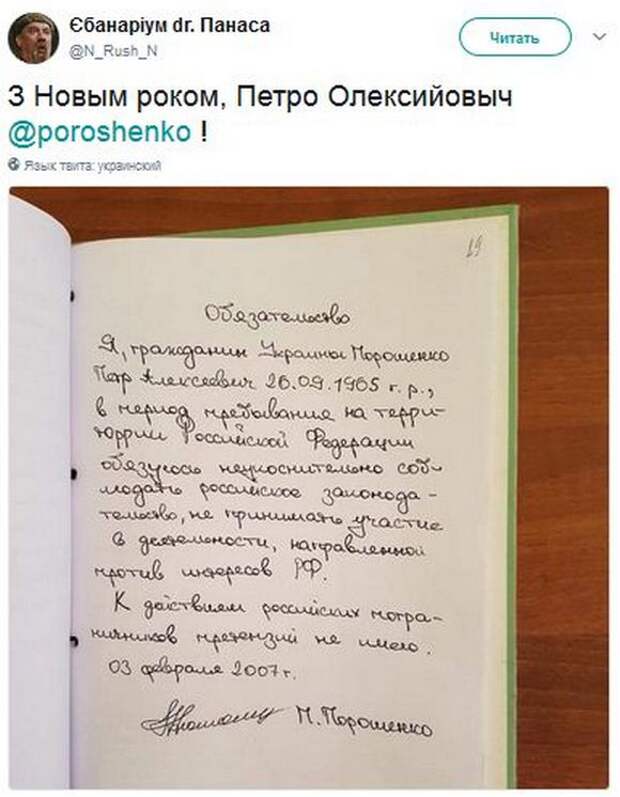 Єбанаріум dr. Панаса
@N_Rush_N
Читать
З Новым роком, Петро Олексийовыч
@poroshenko !
Язык твита: украинский
19
Обязательство
Я, гражданин Украины Порошенко
Петр Алексеевич 26.09.1965 г.р.,
в период пребывание на терри-
торрии Российской Федерации
обязуюсь неукоснительно соб-
людать российское законода-
тельство, не принимать участие
в деятельности, направленной
против интересов РФ.
К действием российских погра-
ничников претензий не имею.
03 февраля 2007г.
П. Порошенко